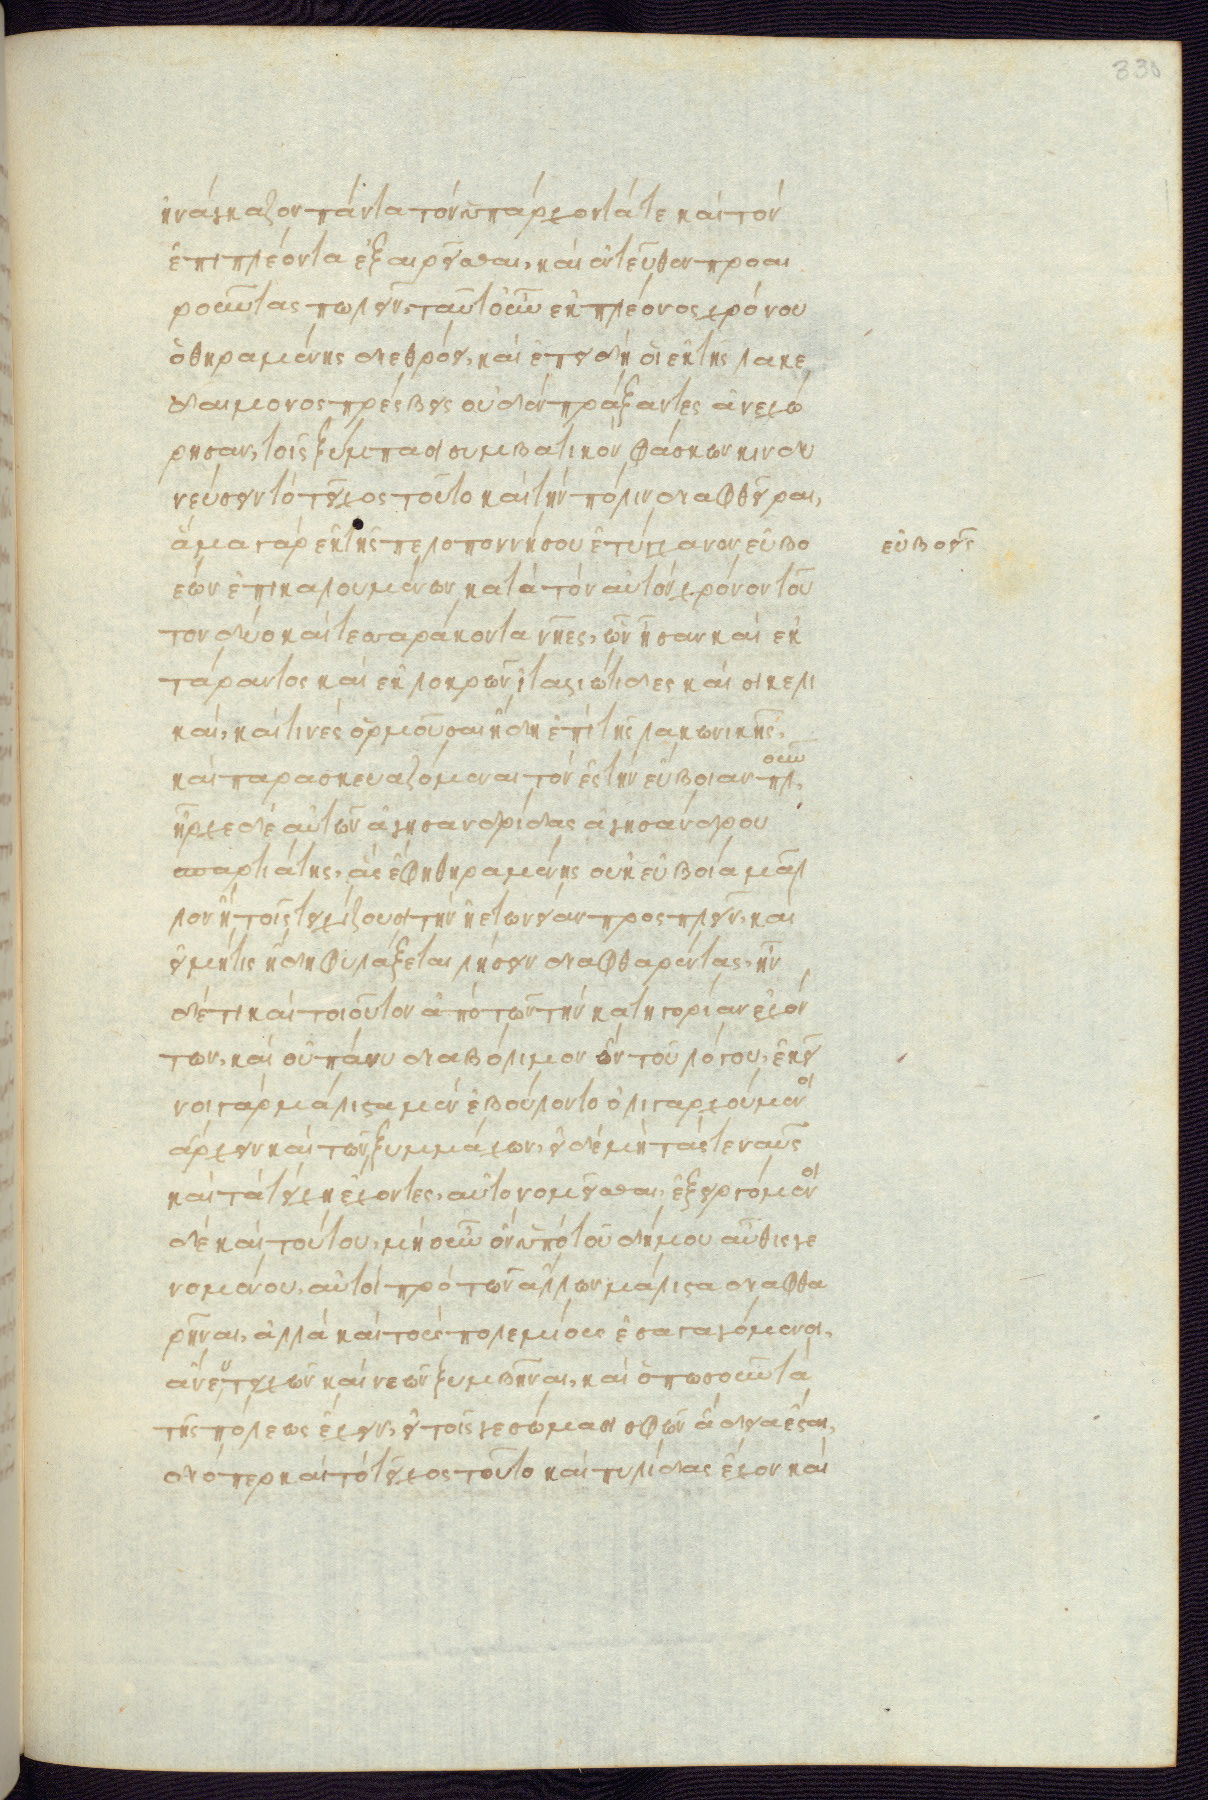 ἠνάγκαζον πάντα τὸν ὑπάρχοντά τε καὶ τὸν
ἐπιπλέοντα ἐξαιρεῖσθαι, καὶ ἐντεῦθεν προαι
ροῦντας πωλεῖν, ταῦτ οὖν ἐκ πλέονος χρόνου
ὁ θηραμένης διεθρόει, καὶ ἐπειδὴ οἱ ἐκ τῆς λακε
δαίμονος πρέσβεις οὐδὲν πράξαντες ἀνεχώ
ρησαν, τοῖς ξύμπασι συμβατικὸν φάσκων κινδυ
νεύσειν τὸ τεῖχος τοῦτο καὶ τὴν πόλιν διαφθεῖραι,
ἅμα γὰρ ἐκ τῆς πελοποννήσου ἐτύγχανον εὐβο
έων ἐπικαλουμένων κατὰ τὸν αὐτὸν χρόνον τοῦ
τον δύο καὶ τεσσαράκοντα νῆες, ὧν ἦσαν καὶ ἐκ
τάραντος καὶ ἐκ λοκρῶν ἰταλιώτιδες καὶ σικελι
καί, καὶ τινὲς ὁρμοῦσαι ἤδη ἐπὶ τῆς λακωνικῆς,
καὶ παρασκευαζόμεναι τὸν ἐς τὴν εὔβοιαν πλοῦν,
ἦρχε δὲ αὐτῶν ἀγησανδρίδας ἀγησάνδρου
σπαρτιάτης, ἃς ἔφη θηραμένης οὐκ εὐβοία μᾶλ
λον ἢ τοῖς τειχίζουσι τὴν ἠετιωνείαν προσπλεῖν, καὶ
εἰ μή τις ἤδη φυλάξεται λήσειν διαφθαρέντας, ἦν
δέ τι καὶ τοιοῦτον ἀπὸ τῶν τὴν κατηγορίαν ἐχόν
των, καὶ οὐ πάνυ διαβόλιμον ὂν τοῦ λόγου, ἐκεῖ
νοι γὰρ μάλιστα μὲν ἐβούλοντο ὀλιγαρχούμενοι
ἄρχειν καὶ τῶν ξυμμάχων, εἰ δὲ μὴ τάς τε ναῦς
καὶ τὰ τείχη ἔχοντες, αὐτονομεῖσθαι, ἐξειργόμενοι
δὲ καὶ τούτου, μὴ οὖν ὂν ὑπὸ τοῦ δήμου αὖθις γε
νομένου, αὐτοὶ πρὸ τῶν ἄλλων μάλιστα διαφθα
ρῆναι, ἀλλὰ καὶ τοὺς πολεμίους ἐσαγαγόμενοι,
ἄνευ τειχῶν καὶ νεῶν ξυμβῆναι, καὶ ὁπωσοῦν τὰ
τῆς πόλεως ἔχειν, εἰ τοῖς γε σώμασι σφῶν ἄδεια ἔσται,
διόπερ καὶ τὸ τεῖχος τοῦτο καὶ πυλίδας ἔχον καὶ
εὐβοεῖς
330